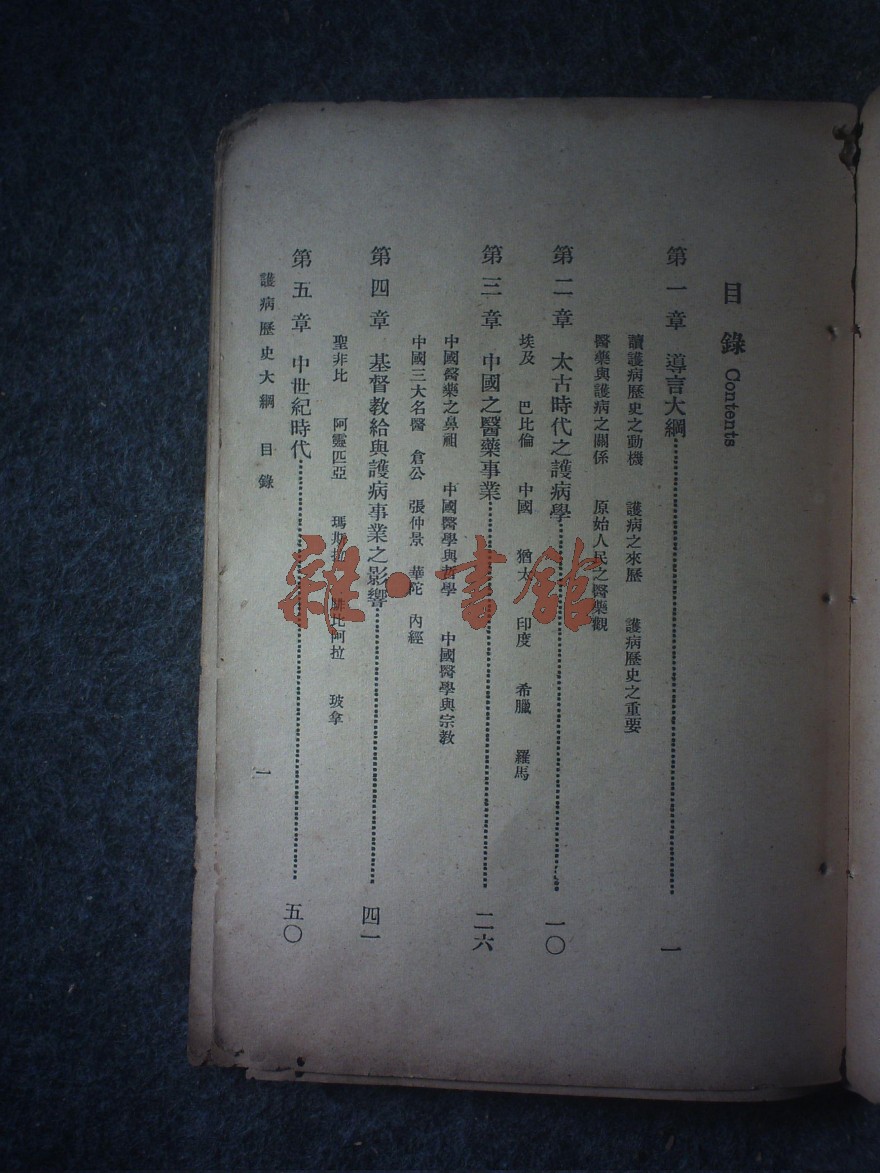 目錄 Contents
第一章 導言大綱 一
讀護病歷史之動機 護病之來歷 護病歷史之重要
醫藥與護病之關係 原始人民之醫藥觀
第二章 太古時代之護病學 一〇
埃及 巴比倫 中國 猶太 印度 希臘 羅馬
第三章 中國之醫藥事業 二六
中國醫藥之鼻祖 中國醫學與哲學 中國醫學與宗教
中國三大名醫 倉公 張仲景 華陀 內經
第四章 基督教給與護病事業之影響 四一
聖非比 阿靈匹亞 瑪斯拉 腓比阿拉 玻拿
第五章 中世紀時代 五〇
護病歷史大綱 目錄 一
雜·書館